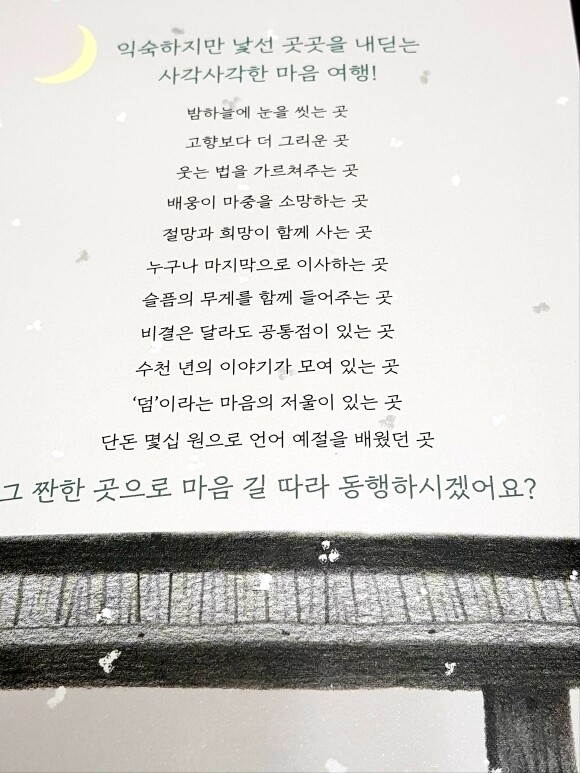 익숙하지만 낯선 곳곳을 내딛는
사각사각한 마음 여행!
밤하늘에 눈을 씻는 곳
고향보다 더 그리운 곳
웃는 법을 가르쳐주는 곳
배웅이 마중을 소망하는 곳
절망과 희망이 함께 사는 곳
누구나 마지막으로 이사하는 곳
슬픔의 무게를 함께 들어주는 곳
비결은 달라도 공통점이 있는 곳
수천 년의 이야기가 모여 있는 곳
‘덤’이라는 마음의 저울이 있는 곳
단돈 몇십 원으로 언어 예절을 배웠던 곳
그 짠한 곳으로 마음 길 따라 동행하시겠어요?